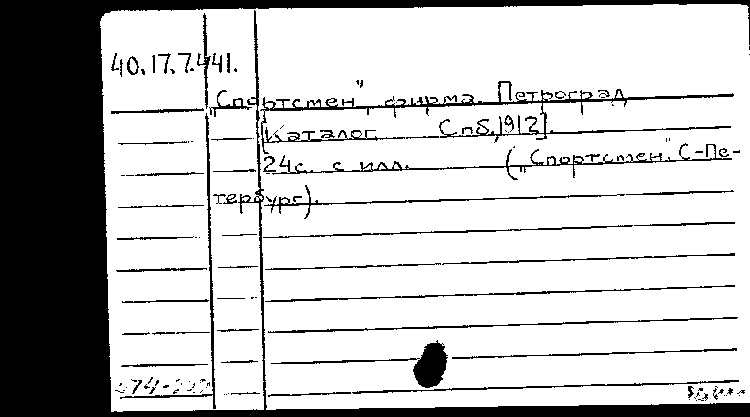 40.17.7.441.
„Спортсмен", фирма. Петроград
[Каталог. Спб, 1912].
24с. с илл. („Спортсмен". С-Пе-
тербург).